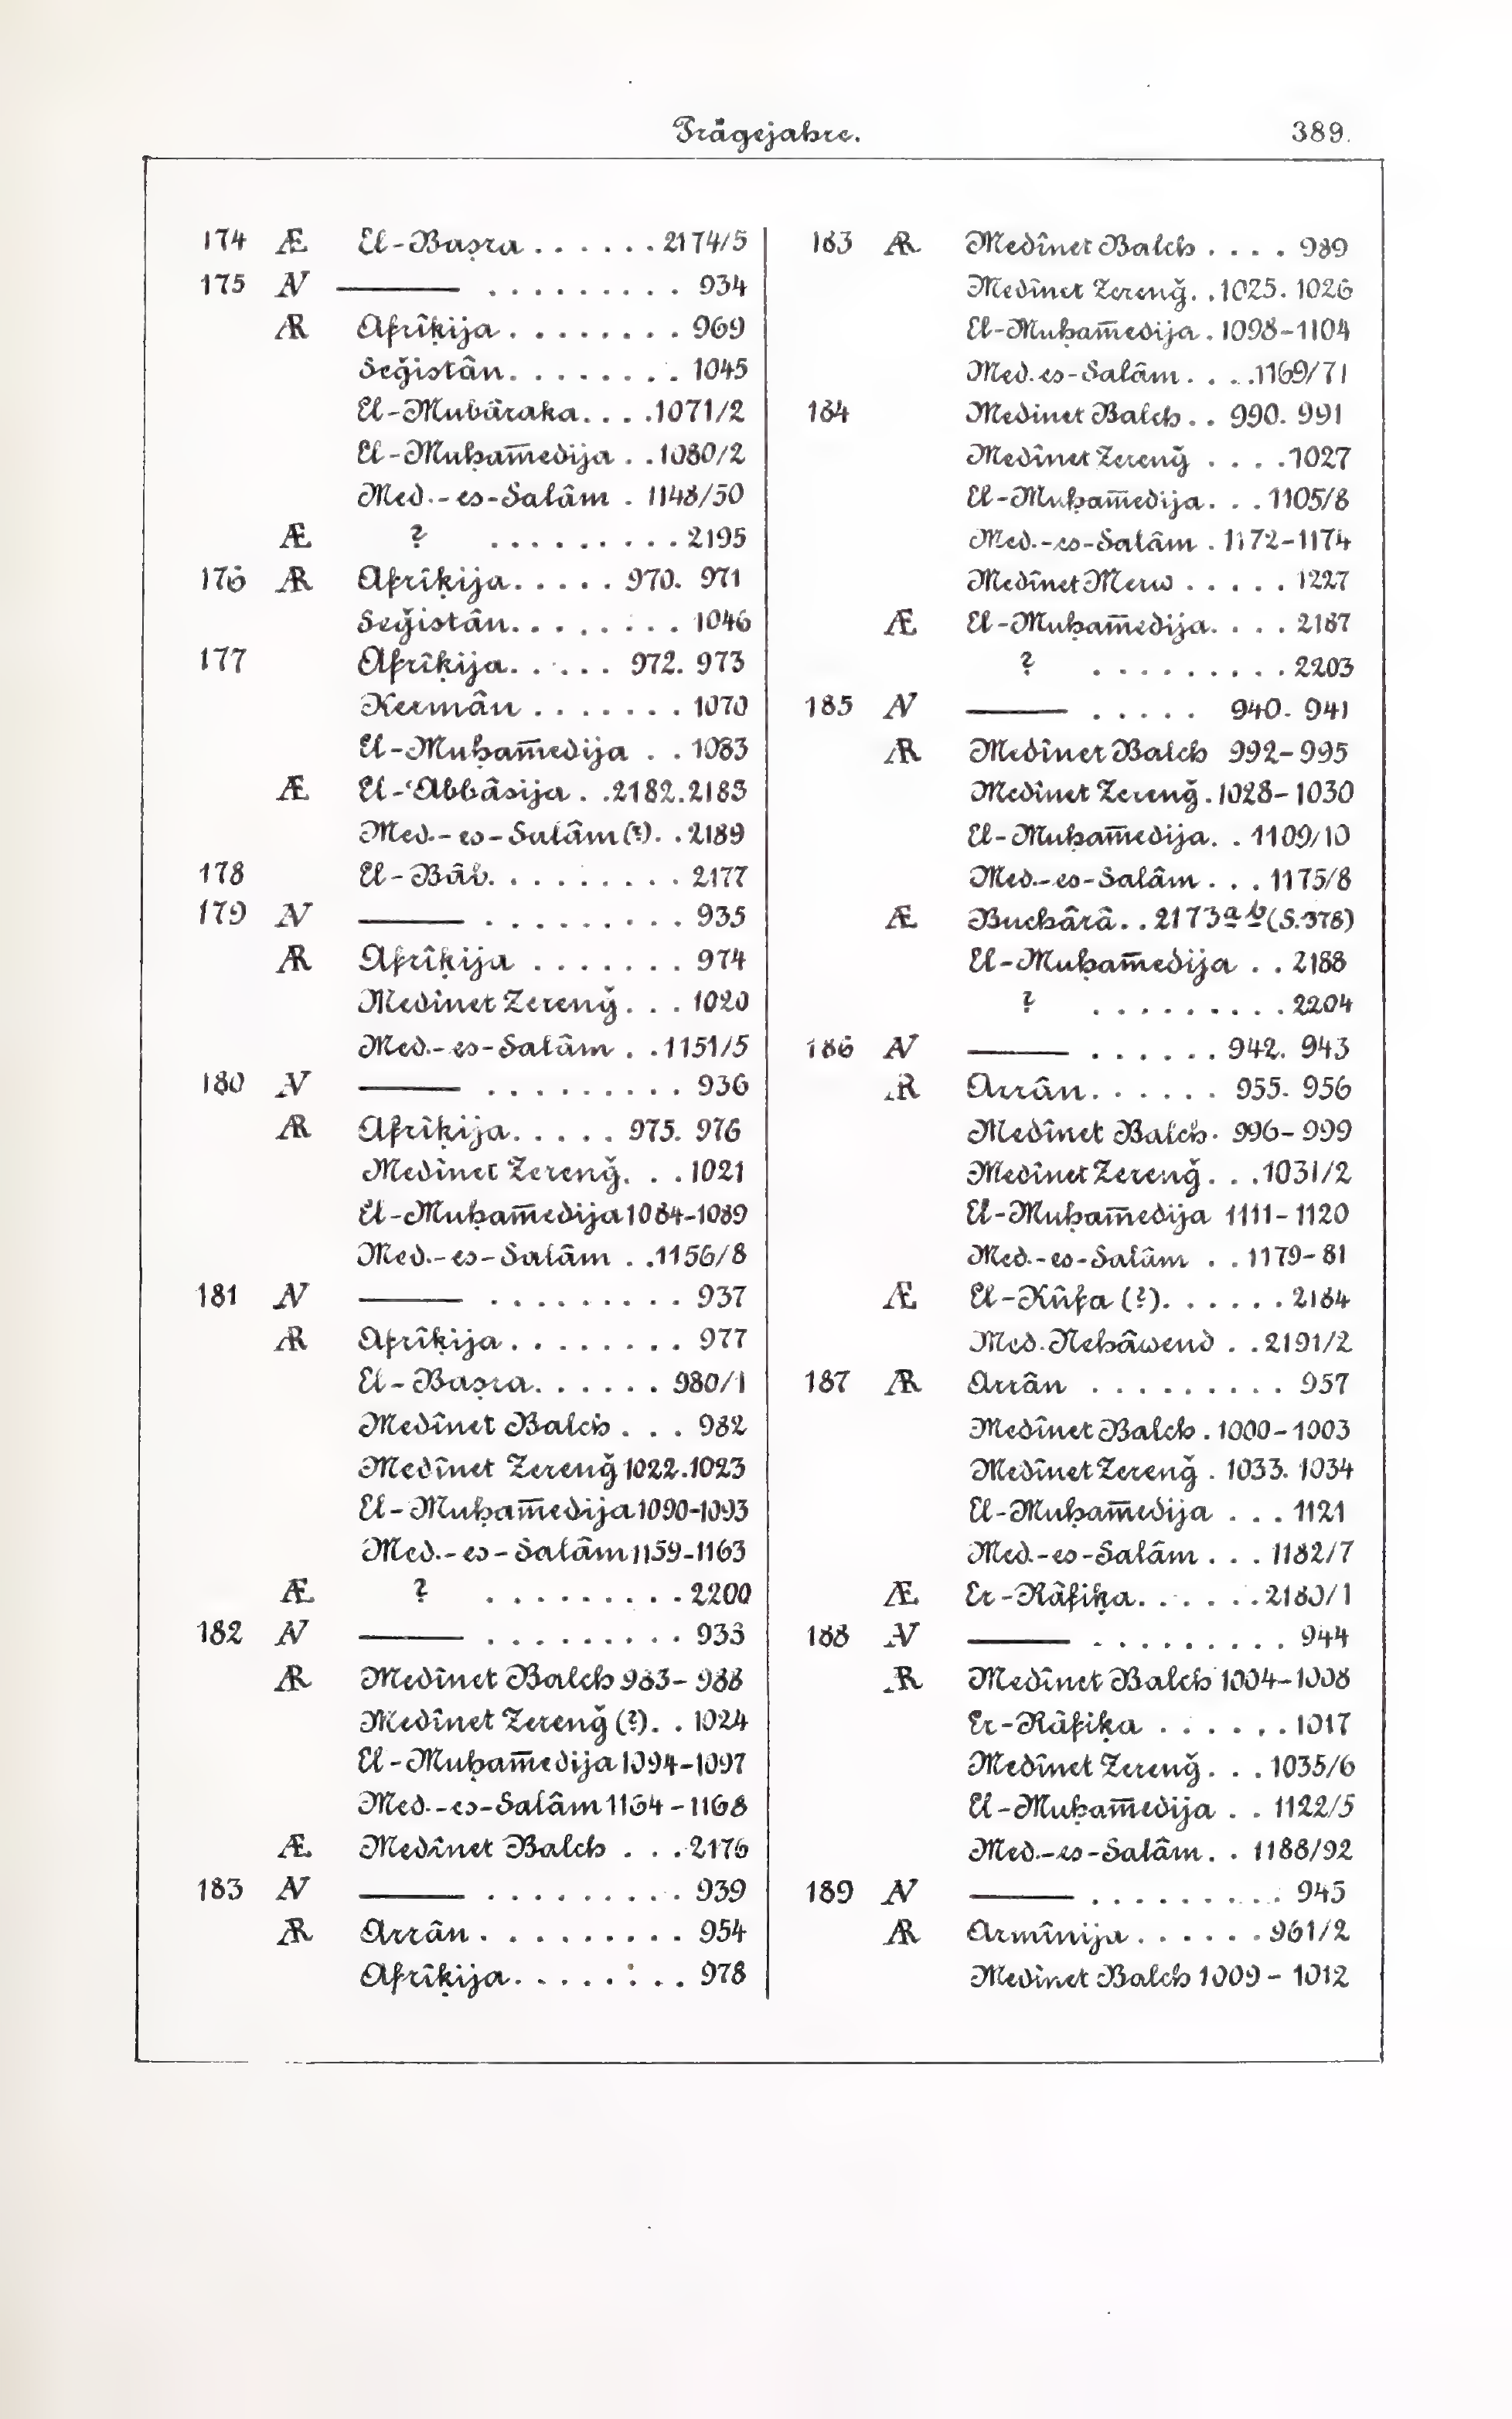 Prägejahre. 389.
174 Æ El-Baṣra . . . . . . 2174/5
175 AV ——— . . . . . . . . . 934
AR Afrîḳija . . . . . . . . 969
Seǧistân. . . . . . . . . 1045
El-Mubâraka. . . .1071/2
El-Muḥam̅edija . . 1080/2
Med.-es-Salâm . 1148/50
Æ ? . . . . . . . . . 2195
176 AR Afrîḳija. . . . . 970. 971
Seǧistân. . . . . . . . 1046
177 Afrîḳija. . . . . 972. 973
Kermân . . . . . . . 1070
El-Muḥam̅edija . . 1083
Æ El-ʿAbbâsija . .2182.2183
Med.-es-Salâm(?). . 2189
178 El-Bâb. . . . . . . . . 2177
179 AV ——— . . . . . . . . . 935
AR Afrîḳija . . . . . . . 974
Medînet Zerenǧ. . . 1020
Med.-es-Salâm . . 1151/5
180 AV ——— . . . . . . . . . 936
AR Afrîḳija. . . . . 975. 976
Medînet Zerenǧ. . . 1021
El-Muḥam̅edija 1084-1089
Med.-es-Salâm . .1156/8
181 AV ——— . . . . . . . . . 937
AR Afrîḳija . . . . . . . . 977
El-Baṣra. . . . . . 980/1
Medînet Balch . . . 982
Medînet Zerenǧ 1022.1023
El-Muḥam̅edija 1090-1093
Med.-es-Salâm 1159-1163
Æ ? . . . . . . . . . 2200
182 AV ——— . . . . . . . . . 938
AR Medînet Balch 983-988
Medînet Zerenǧ (?). . 1024
El-Muḥam̅edija 1094-1097
Med.-es-Salâm 1164-1168
Æ Medînet Balch . . . 2176
183 AV ——— . . . . . . . . . 939
AR Arrân . . . . . . . . . 954
Afrîḳija. . . . . . . . 978
183 AR Medînet Balch . . . . 989
Medînet Zerenǧ. . 1025. 1026
El-Muḥam̅edija . 1098-1104
Med. es-Salâm . . . .1169/71
184 Medînet Balch . . 990. 991
Medînet Zerenǧ . . . . 1027
El-Muḥam̅edija. . . 1105/8
Med.-es-Salâm . 1172-1174
Medînet Merw . . . . . 1227
Æ El-Muḥam̅edija. . . . 2187
? . . . . . . . . . 2203
185 AV ——— . . . . . 940. 941
AR Medînet Balch 992-995
Medînet Zerenǧ . 1028-1030
El-Muḥam̅edija. . 1109/10
Med.-es-Salâm . . . 1175/8
Æ Buchârâ. . 2173a b (S.378)
El-Muḥam̅edija . . 2188
? . . . . . . . . . 2204
186 AV ——— . . . . . . 942. 943
AR Arrân. . . . . . 955. 956
Medînet Balch. 996-999
Medînet Zerenǧ . . . 1031/2
El-Muḥam̅edija 1111-1120
Med.-es-Salâm . . 1179-81
Æ El-Kûfa (?). . . . . . 2184
Med. Nehâwend . . 2191/2
187 AR Arrân . . . . . . . . . 957
Medînet Balch . 1000-1003
Medînet Zerenǧ . 1033. 1034
El-Muḥam̅edija . . . 1121
Med.-es-Salâm . . . 1182/7
Æ Er-Râfiḳa. . . . . . 2180/1
188 AV ——— . . . . . . . . . 944
AR Medînet Balch 1004-1008
Er-Râfiḳa . . . . . . 1017
Medînet Zerenǧ . . . 1035/6
El-Muḥam̅edija . . 1122/5
Med.-es-Salâm. . 1188/92
189 AV ——— . . . . . . . . . 945
AR Armînija . . . . . . 961/2
Medînet Balch 1009-1012